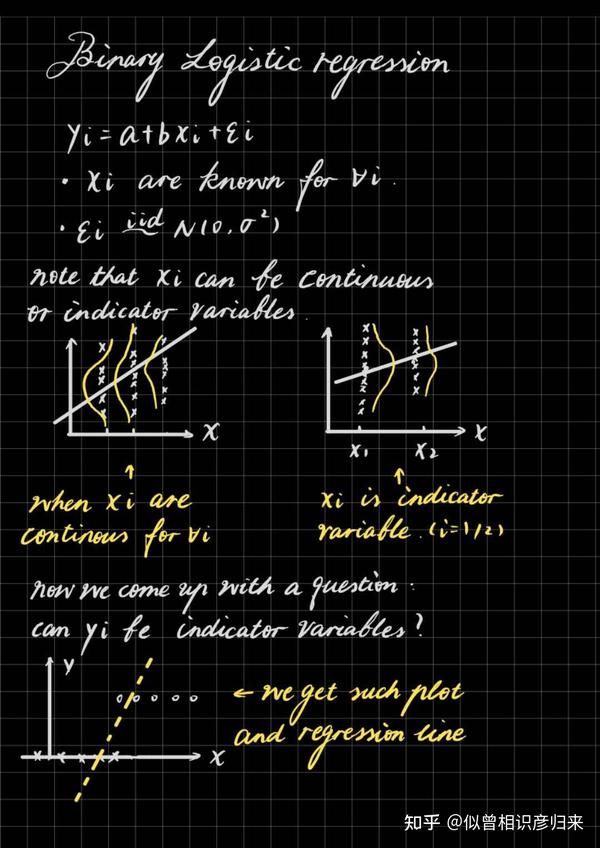 Binary Logistic regression
yi = a+bxi+εi
· xi are known for ∀i.
· εi iid N(0, σ²)
note that xi can be continuous
or indicator variables.
X
X
x₁ x₂
↑
↑
when xi are
continous for ∀i
xi is indicator
variable. (i=1/2)
now we come up with a question:
can yi be indicator variables?
y
← we get such plot
and regression line
X
知乎 @似曾相识彦归来